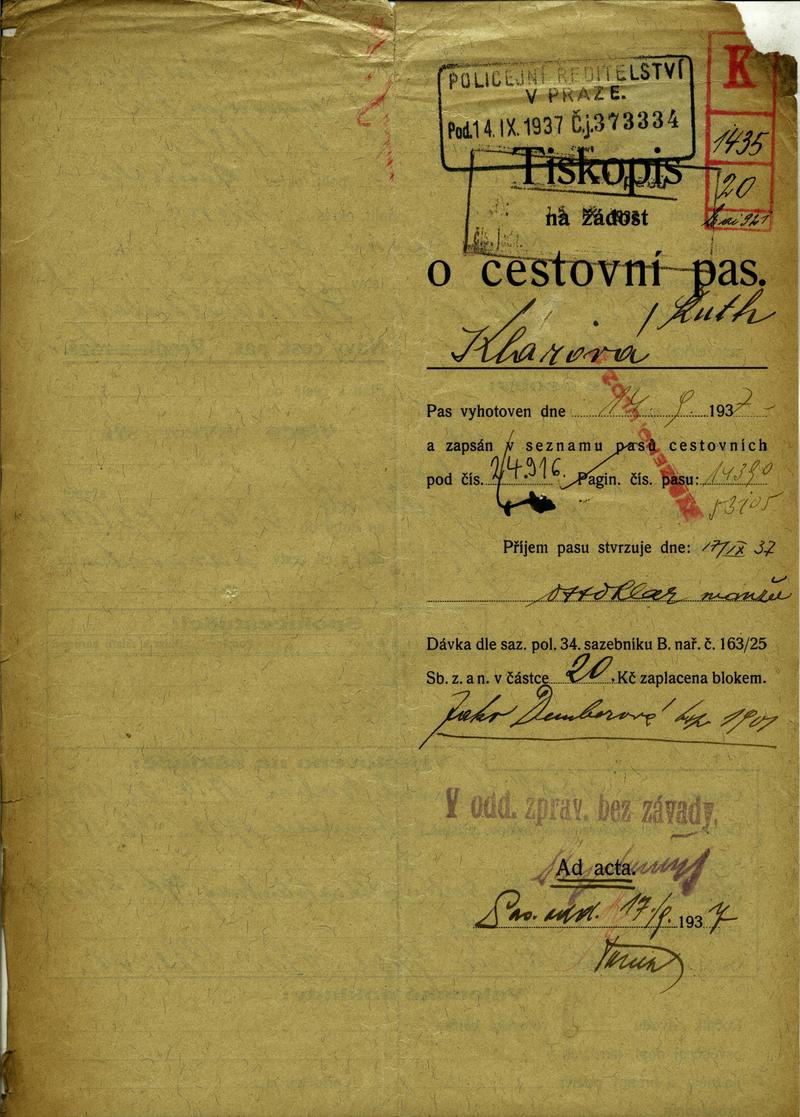 POLICEJNÍ ŘEDITELSTVÍ
V PRAZE.
Pod. 14. IX. 1937 Č.j. 373334
K
1435
20
Tiskopis
na žádost
o cestovní pas.
Klárová Ruth
Pas vyhotoven dne 17. 9. 1937
a zapsán v seznamu pasů cestovních
pod čís. 24.916. Pagin. čís. pasu: 14390
53105
Příjem pasu stvrzuje dne: 17/IX 37
Dávka dle saz. pol. 34. sazebníku B. nař. č. 163/25
Sb. z. a n. v částce 20 Kč zaplacena blokem.
1901
V odd. zprav. bez závady.
Ad acta.
Pas. odd. 17/9. 1937